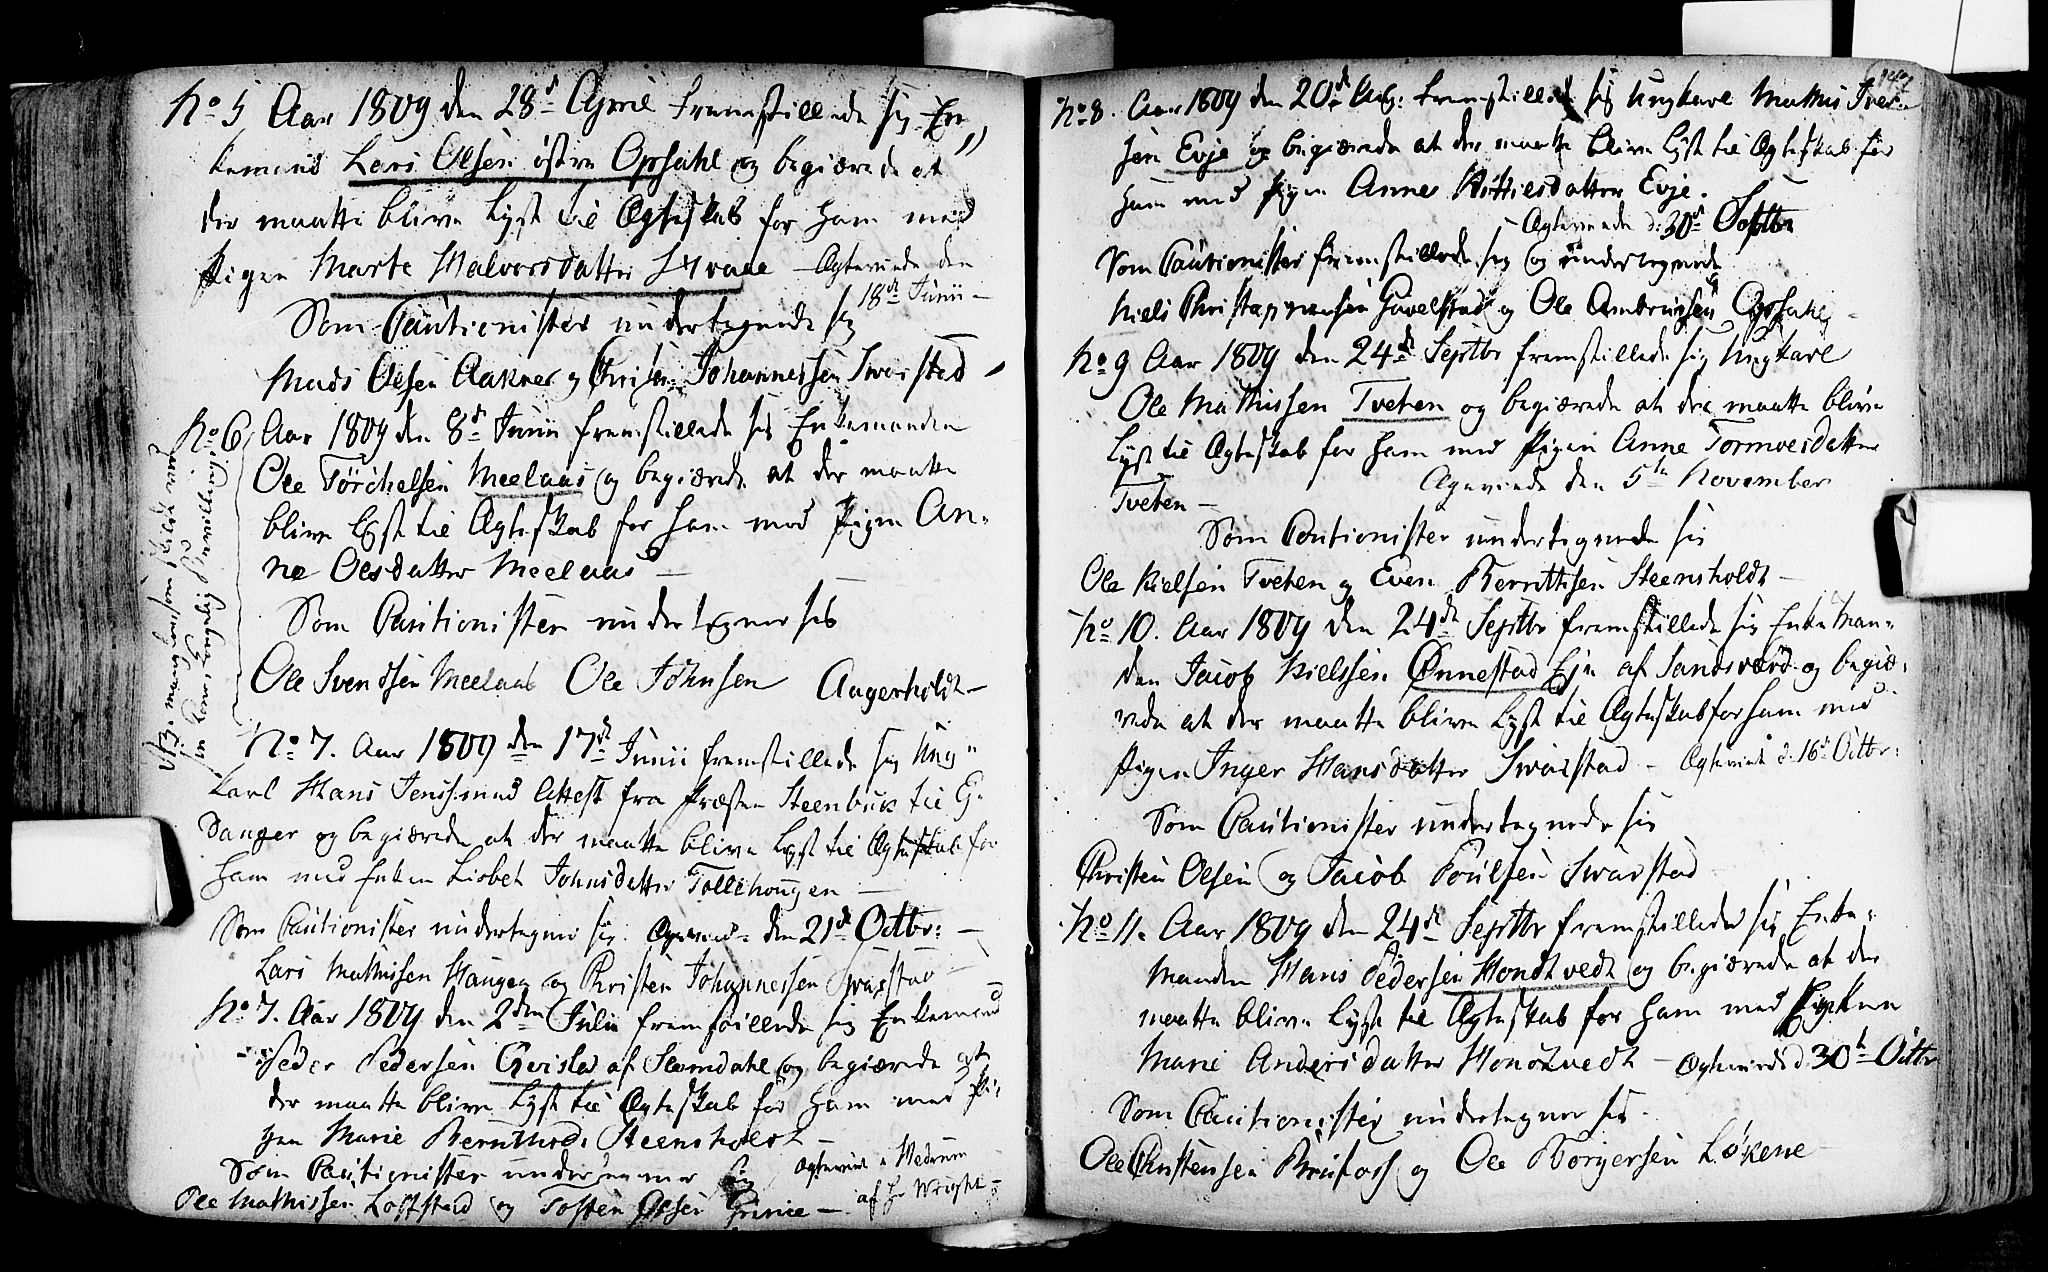 No 5 Aar 1809 den 28d April fremstillede sig En„
kemand Lars Olsen østre Opsahl og begiærede at
der maatte blive lyst til Ægteskab for ham med
Pigen Marte Halvorsdatter Hvaale – Ægteviede den
18de Junii –
Som Cautionister undertegnede sig
Mads Olsen Aaknes og Christen Johannessen Svarstad
No 6, Aar 1809 den 8d Junii fremstillede sig Enkemanden
Ole Törchelsen Meelaas og begiærede at der maatte
blive lyst til Ægteskab for ham med Pigen An-
ne Olsdatter Meelaas –
Som Cautionister undertegner sig
Ole Svendsen Meelaas Ole Johnsen Aagerholdt –
No 7. Aar 1809 den 17de Junii fremstillede sig Ung„
Karl Hans Jenss: med Attest fra Præsten Steenbuk til E-
danger og begiærede at der maatte blive lyst til Ægteskab for
ham med Enken Lisbet Johnsdatter Tollehougen –
Som Cautionister undertegner sig. den 21de Octbr: –
Lars Mathissen Haugen og Christen Johannessen Svarstad –
No 7. Aar 1809 den 2den Julii fremstillede sig Enkemand
Peder Pedersen af og begiærede at
der maatte blive lyst til Ægteskab for ham med Pi-
gen Marie Steensholdt –
Som Cautionister undertegner sig Ægteviet i Hedrum
Ole Mathissen Loffstad og Tosten Olsen Grinie – af Hr Wright –
No 8. Aar 1809 den 20de Aug: fremstillede sig Ungkarl Mathis Iver-
sen Evje og begiærede at der maatte blive lyst til Ægteskab for
ham med Pigen Anne Evje.
– Ægteviede d: 30te Septbr
Som Cautionister fremstillede sig og undertegnede
Niels Christophersen Gavelstad og Ole Ambrosen Opsahl –
No 9 Aar 1809 den 24de Septbr fremstillede sig Ungkarl
Ole Mathissen Tveten og begiærede at der maatte blive
lyst til Ægteskab for ham med Pigen Anne Tormoesdatter
Tveten – Ægteviede den 5te November
Som Cautionister undertegnede sig
Ole Nielsen Tveten og Even Berntsen Steensholdt –
No 10. Aar 1809 den 24de Septbr fremstillede sig Enke Man-
den Jacob Nielssen Ønnestad Eje af Sandsværd og begiæ-
rede at der maatte blive lyst til Ægteskab for ham med
Pigen Inger Hansdatter Svarstad – Ægteviet d: 16de Octbr:
Som Cautionister undertegnede sig
Christen Olsen og Jacob Poulsen Svarstad
No 11. Aar 1809 den 24de Septbr fremstillede sig Enke-
manden Hans Pedersen Hondtvedt og begiærede at der
maatte blive lyst til Ægteskab for ham med
Marie Andersdatter Hondtvedt – Ægteviede d: 30te Octbr
Som Cautionister undertegner sig.
Ole Christensen Brufoss og Ole Borgersen Løkene